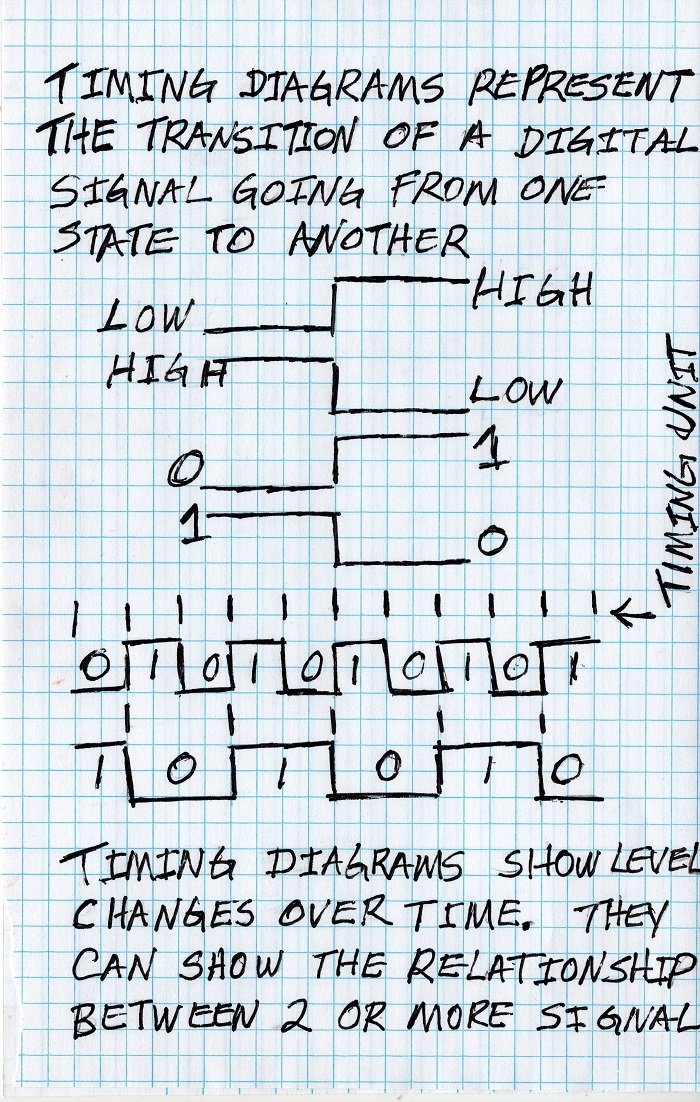 TIMING DIAGRAMS REPRESENT
THE TRANSITION OF A DIGITAL
SIGNAL GOING FROM ONE
STATE TO ANOTHER
LOW HIGH
HIGH LOW
0 1
1 0
TIMING UNIT
0 1 0 1 0 1 0 1 0 1
1 0 1 0 1 0
TIMING DIAGRAMS SHOW LEVEL
CHANGES OVER TIME. THEY
CAN SHOW THE RELATIONSHIP
BETWEEN 2 OR MORE SIGNAL